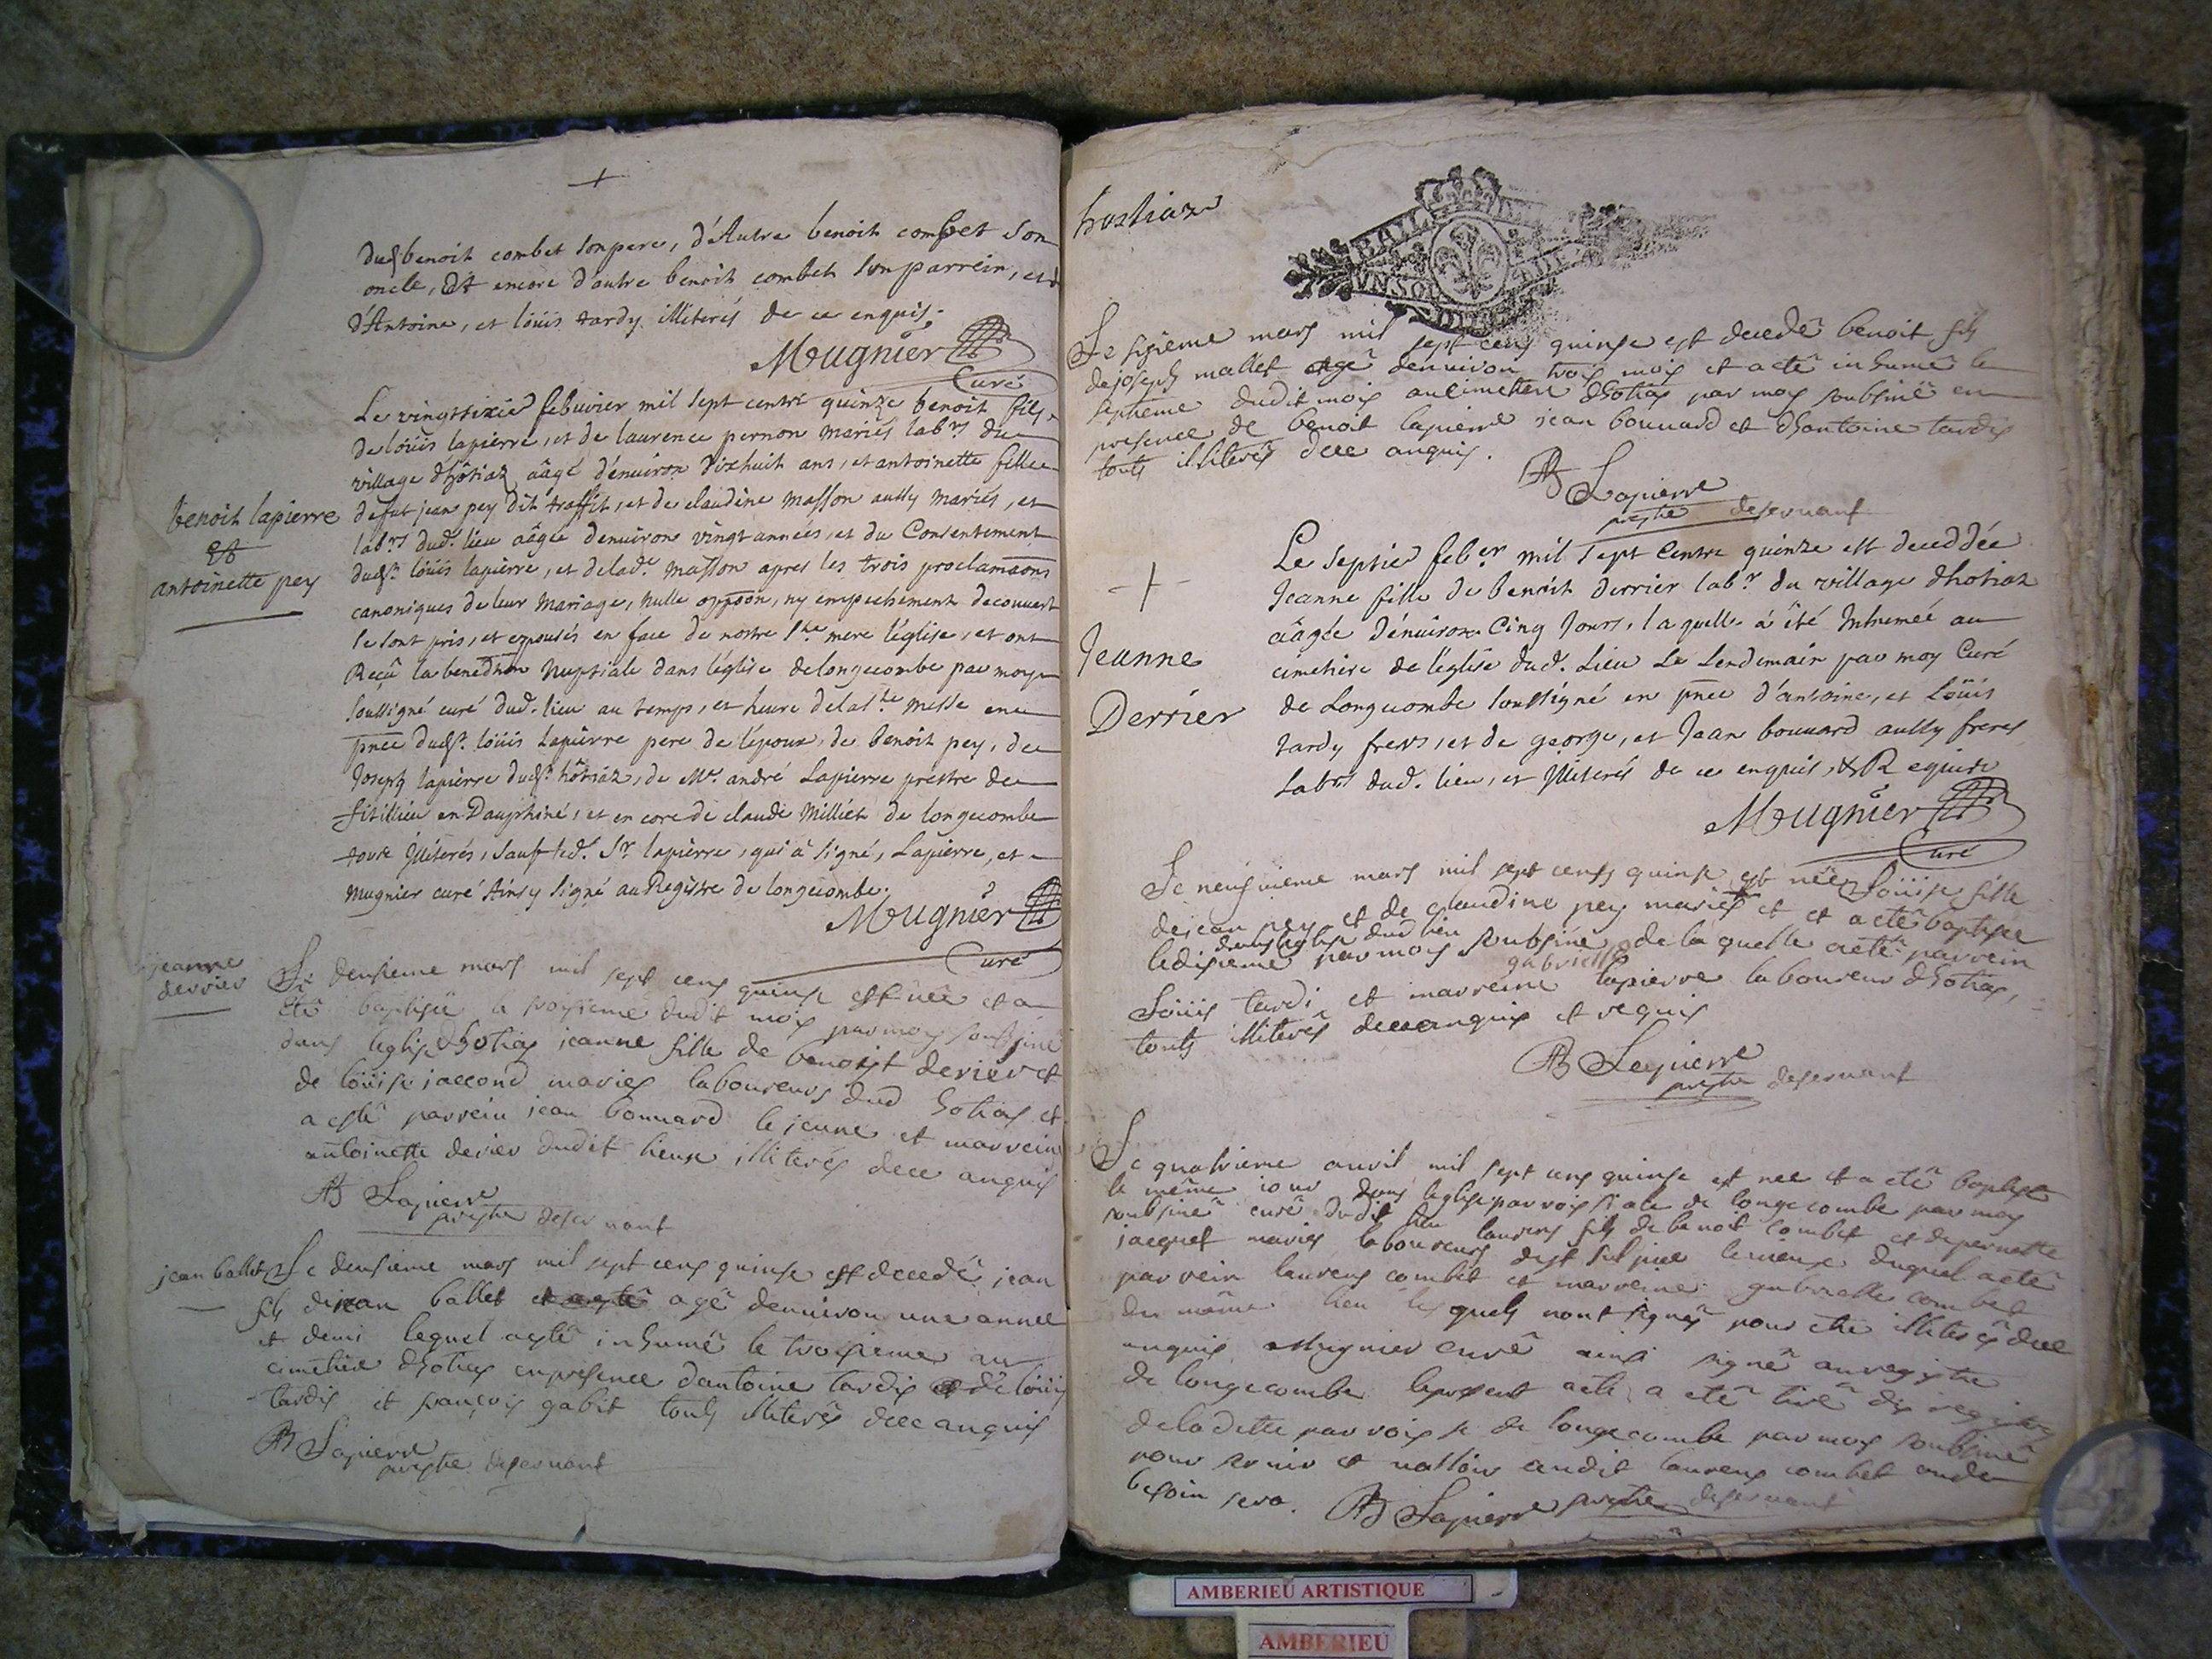 dud benoit combet son pere, d'Autre benoit combet son
oncle, Et encore d'autre benoit combet son parrein, et
d'Antoine, et loüis tardy illiterés de ce enquis.
Mugnier
Curé
Le vingtsixie febuvier mil sept centz quinze benoit fils
de loüis lapierre, et de laurence pernon mariés labrs du
village dhôtiaz ââgé d'enuiron dixhuit ans, et antoinette fille
de fut jean pey dit traffit, et de claudine masson aussy mariés, et
labrs dud. lieu ââgée denuiron vingt années, et du Consentement
dud. loüis lapierre, et de lad.e masson apres les trois proclamaõns
canoniques de leur mariage, nulle oppõon, ny empechement decouvert
se sont pris, et epousés en face de nostre Ste mere léglise, et ont
Reçû la benediction Nuptiale dans léglise de longecombe par moy
soussigné curé dud. lieu au temps, et heure de la Ste messe en
pñce dud. loüis lapierre pere de lépoux, de benoit pey, de
Joseph lapierre dud. hôtiaz, de Mre andré Lapierre prestre de
fitillieu en Dauphiné, et encore de claude Milliet de longecombe
tous illiterés, sauf led. Sr lapierre, qui à signé, Lapierre, et
mugnier curé Ainsy signé au Registre de longecombe.
Mugnier
Curé
benoit lapierre
Et
antoinette pey
jeanne
derrier
Le deusieme mars mil sept cens quinse est née et a
été baptisée le troisieme dudit mois par moy soussiné
dans leglise dhotias jeanne fille de benoist derier et
de loüise jaccond mariés laboureurs dud hotias et
a esté parrein jean bonnard le jeune et marreine
antoinette derier dudit lieux illiterés dece anquis
Lapierre
prestre deseruant
jean ballet
Le deusieme mars mil sept cens quinse est decedé jean
fils de jean ballet agé denuiron une année
et demi lequel a esté inhumé le troisieme au
cimetiere dhotias en presence dantoine tardis et de loüis
tardis et françois gabit touts illiterés dece anquis
Lapierre
prestre deseruant
hostiaz
BAIL
UN SOL
Le sixieme mars mil sept cens quinse est decedé benoit fils
de joseph mallet agé denuiron trois mois et a eté inhumé le
septieme dudit mois au cimetiere dhotias par moy soubsiné en
presence de benoit lapierre jean bonnard et dhantoine tardis
touts illiterés dece anquis.
Lapierre
prestre deseruant
Le septie feber mil sept centz quinze est deceddée
Jeanne fille de benoit derrier labr du village dhotiaz
ââgée d'énuiron cinq jours, laquelle à été Inhumée au
cimetiere de léglise dud. lieu Le Lendemain par moy Curé
de Longecombe soussigné en pñce d'antoine, et Loüis
tardy freres, et de george, et Jean bonnard aussy freres
Labrs dud. lieu, et Illiterés de ce enquis, & Requis
Mugnier
Curé
Jeanne
Derrier
Le neufvieme mars mil sept cens quinse est née Loüise fille
de jean pey et de claudine pey mariés et a eté baptisée
dans leglise dud lieu
le disieme par moy soubsiné de la quelle a eté parrein
gabrielle
Loüis tardi et marreine lapierre laboureur dhotias,
touts illiterés dece anquis et requis
Lapierre
prestre deseruant
Le quatrieme auril mil sept cens quinse est née et a eté baptisé
le même iour dans leglise parroissiale de longecombe par moy
soubsiné curé dudit lieu laurens fils de benoit combet et de pernette
jacquet mariés laboureurs duquel a eté
parrein laurens combet et marreine gabrielle combet
du même lieu les quels nont signé pour etre illiterés dece
anquis Mugnier curé ainsi signé au registre
de longecombe le present acte a eté tiré du registre
de ladette parroisse de longecombe par moy soubsiné
pour seruir et ualloir audit laurens combet ou de
besoin sera. Lapierre prestre deseruant
AMBERIEU ARTISTIQUE
AMBERIEU